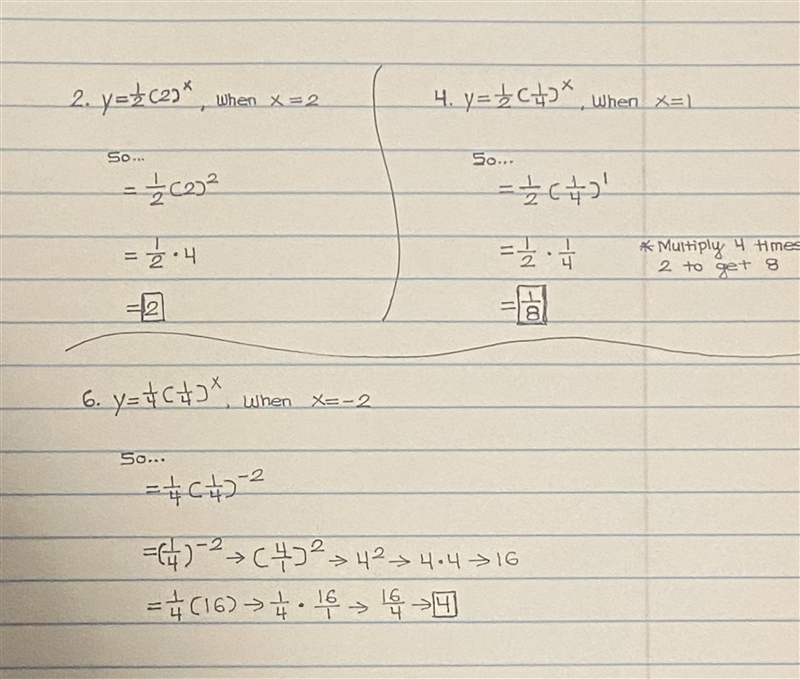 2. y=½(2)ˣ, when x=2
So...
=½(2)²
=½·4
=2
4. y=½(¼)ˣ, when x=1
So...
=½(¼)¹
=½·¼
=⅛
*Multiply 4 times
2 to get 8
6. y=¼(¼)ˣ, when x=-2
So...
=¼(¼)⁻²
=(¼)⁻²→(4/1)²→4²→4·4→16
=¼(16)→¼·16/1→16/4→4